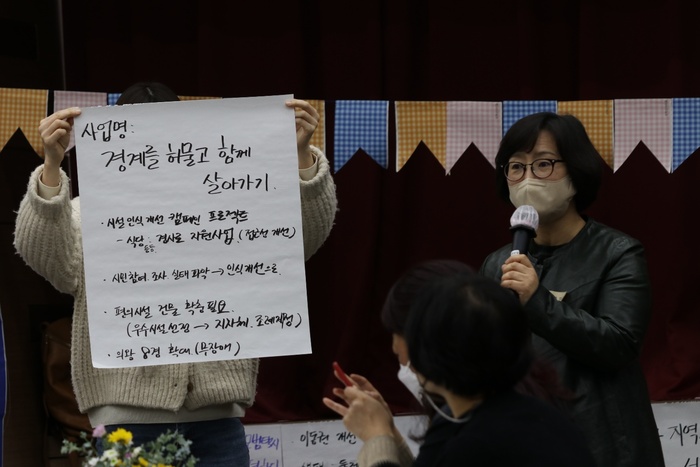 사업명:
경계를 허물고 함께
살아가기.
· 시설 인식 개선 캠페인 프로젝트
- 식당 등등 : 경사로 지원사업 (접근성 개선)
· 시민참여. 조사. 실태 파악 → 인식개선으로.
· 편의시설 건물 확충 필요.
(우수시설 선정 → 지자체. 조례제정)
· 의왕 8경 확대 (무장애)
이동권 개선
지역